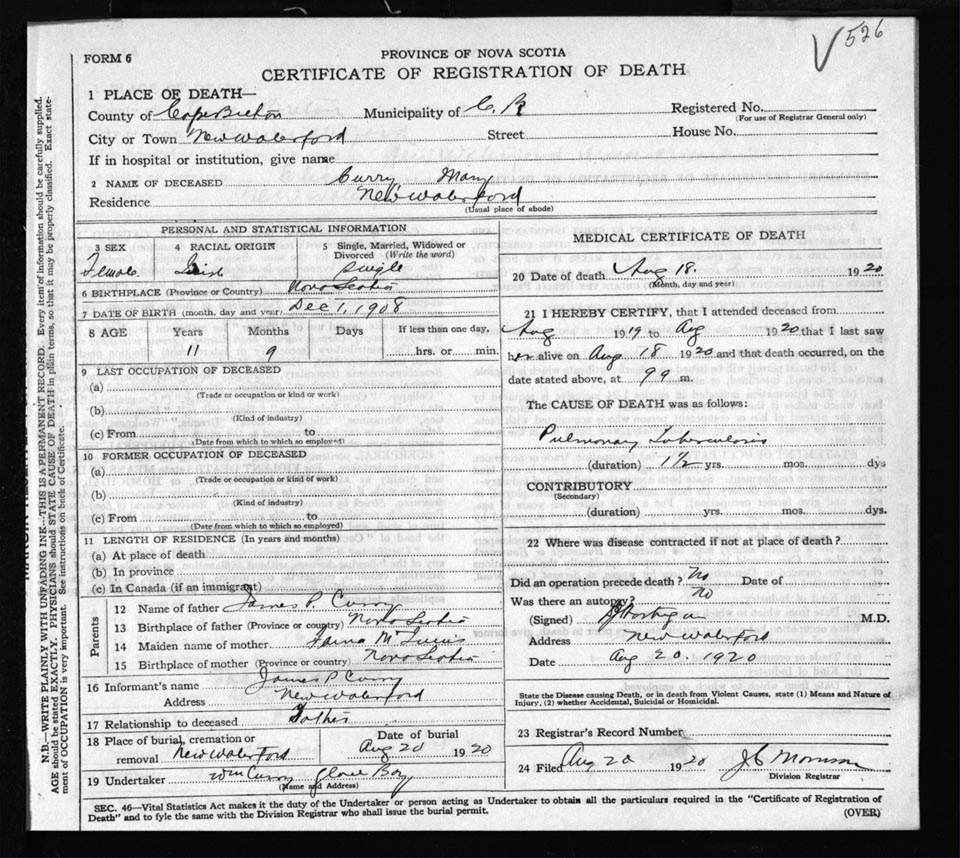 V 526
FORM 6
PROVINCE OF NOVA SCOTIA
CERTIFICATE OF REGISTRATION OF DEATH
1 PLACE OF DEATH—
County of Cape Breton Municipality of C. B Registered No.
(For use of Registrar General only)
City or Town New Waterford Street House No.
If in hospital or institution, give name
2 NAME OF DECEASED Curry Mary
Residence New Waterford
(Usual place of abode)
PERSONAL AND STATISTICAL INFORMATION
3 SEX 4 RACIAL ORIGIN 5 Single, Married, Widowed or Divorced (Write the word)
Female Irish Single
6 BIRTHPLACE (Province or Country) Nova Scotia
7 DATE OF BIRTH (month, day and year) Dec 1, 1908
8 AGE Years Months Days If less than one day,
11 9 hrs. or min.
9 LAST OCCUPATION OF DECEASED
(a)
(Trade or occupation or kind or work)
(b)
(Kind of industry)
(c) From to
(Date from which to which so employed)
10 FORMER OCCUPATION OF DECEASED
(a)
(Trade or occupation or kind of work)
(b)
(Kind of industry)
(c) From to
(Date from which to which so employed)
11 LENGTH OF RESIDENCE (In years and months)
(a) At place of death
(b) In province
(c) In Canada (if an immigrant)
Parents
12 Name of father James P. Curry
13 Birthplace of father (Province or country) Nova Scotia
14 Maiden name of mother Mc
15 Birthplace of mother (Province or country) Nova Scotia
16 Informant's name James P Curry
Address New Waterford
17 Relationship to deceased Father
18 Place of burial, cremation or removal New Waterford
Date of burial Aug 20 1920
19 Undertaker Wm Curry Glace Bay
(Name and Address)
MEDICAL CERTIFICATE OF DEATH
20 Date of death Aug 18. 1920
(Month, day and year)
21 I HEREBY CERTIFY, that I attended deceased from
Aug 1919 to Aug 1920 that I last saw
her alive on Aug 18 1920 and that death occurred, on the
date stated above, at 9 a m.
The CAUSE OF DEATH was as follows:
Pulmonary Tuberculosis
(duration) 1½ yrs. mos. dys
CONTRIBUTORY
(Secondary)
(duration) yrs. mos. dys.
22 Where was disease contracted if not at place of death?
Did an operation precede death? No Date of
Was there an autopsy? No
(Signed) M.D.
Address New Waterford
Date Aug 20. 1920
State the Disease causing Death, or in death from Violent Causes, state (1) Means and Nature of
Injury, (2) whether Accidental, Suicidal or Homicidal.
23 Registrar's Record Number
24 Filed Aug 20 1920 J C Morrison
Division Registrar
SEC. 46—Vital Statistics Act makes it the duty of the Undertaker or person acting as Undertaker to obtain all the particulars required in the "Certificate of Registration of
Death" and to fyle the same with the Division Registrar who shall issue the burial permit. (OVER)
N.B.—WRITE PLAINLY WITH UNFADING INK—THIS IS A PERMANENT RECORD. Every item of information should be carefully supplied.
AGE should be stated EXACTLY. PHYSICIANS should STATE CAUSE OF DEATH in plain terms, so that it may be properly classified. Exact state-
ment of OCCUPATION is very important. See instructions on back of Certificate.